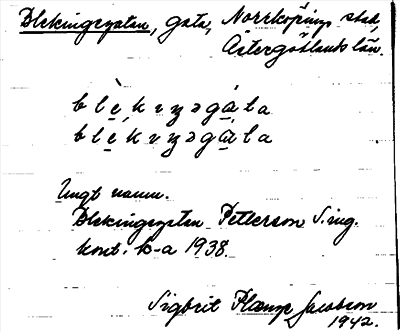 Blekingegatan, gata, Norrköpings stad,
Östergötlands län.
blèkıŋəgàta
blékıŋəgàta
Ungt namn.
Blekingegatan Petterson S. ing.
kont. k-a 1938.
Sigbrit Plænge Jacobson
1942.